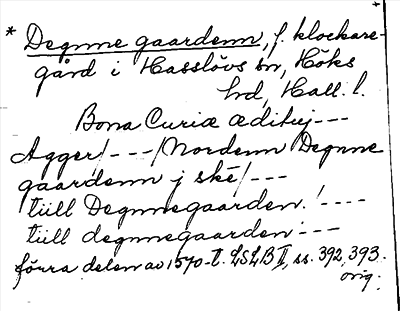 * Degnne gaardenn, f. klockare-
gård i Hasslövs sn, Höks
hd, Hall. l.
Bona Curiæ ædituj ---
Agger/ --- /Nordenn Degnne
gaardenn j ské/ ---
tiill Degnnegaarden. / ----
tiill degnnegaarden: ---
förra delen av 1570-t. LSLB II, ss. 392, 393.
orig.